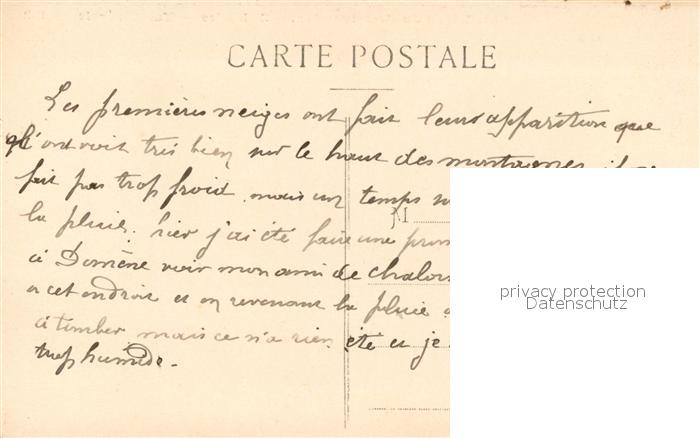 CARTE POSTALE
Les premières neiges ont fait leurs apparition que
l'ont voit très bien sur le haut des montagnes il ne
fait pas trop froid mais un temps
M
la pluie. hier j'ai été faire une
à Domène voir mon ami de
a cet endroit et en revenant la pluie
à tomber mais ce n'a rien été et je
trop humide.
privacy protection
Datenschutz